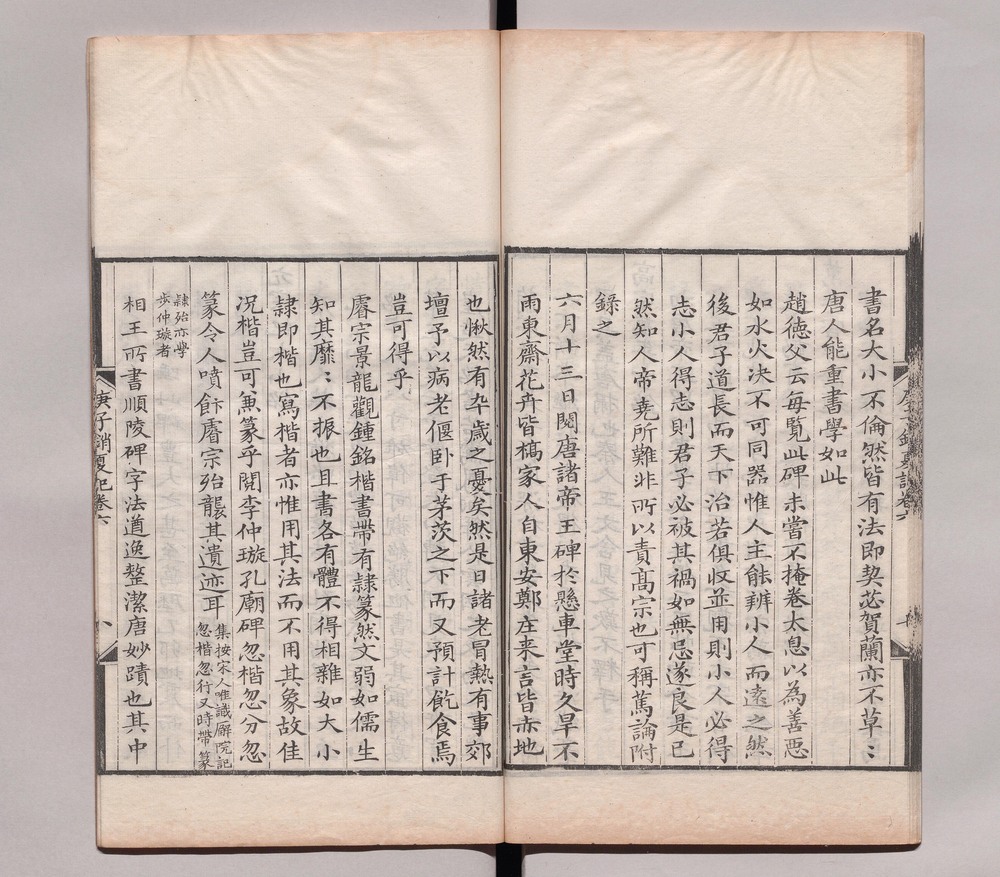 書名大小不倫然皆有法即契苾賀蘭亦不草〻
唐人能重書學如此
趙徳父云每覧此碑未嘗不掩卷太息以為善惡
如水火决不可同器惟人主能辨小人而逺之然
後君子道長而天下治若俱収並用則小人必得
志小人得志則君子必被其禍如無忌遂良是已
然知人帝堯所難非所以責髙宗也可稱篤論附
録之
六月十三日閱唐諸帝王碑於懸車堂時久旱不
雨東齋花卉皆槁家人自東安鄭庄来言皆赤地
也愀然有卒歲之憂矣然是日諸老冒熱有事郊
壇予以病老偃卧于茅茨之下而又預計飢食焉
豈可得乎
睿宗景龍觀鍾銘楷書帶有隷篆然文弱如儒生
知其靡〻不振也且書各有體不得相雜如大小
隷即楷也寫楷者亦惟用其法而不用其象故佳
况楷豈可兼篆乎閱李仲璇孔廟碑忽楷忽分忽
篆令人噴飰睿宗殆襲其遺迹耳
集按宋人唯識廨院記
忽楷忽行又時帶篆
隷殆亦學
步仲璇者
相王所書順陵碑字法遒逸整潔唐妙蹟也其中
庚子銷夏記卷六
八